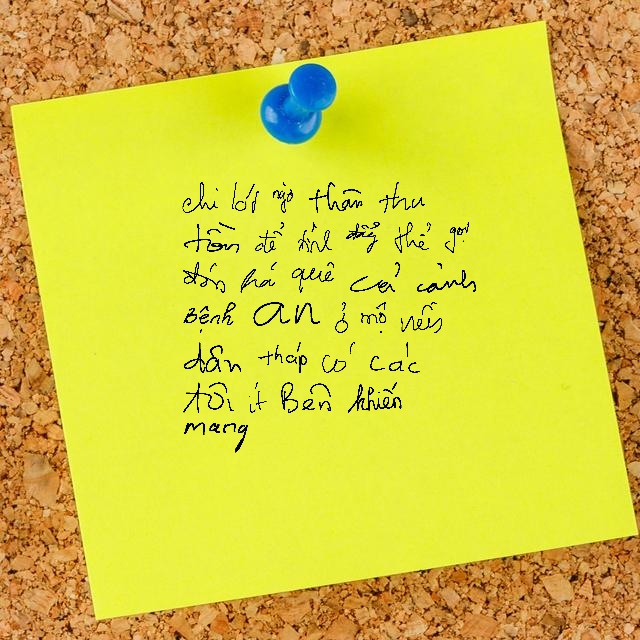 chi lót ngờ thân thu
tồn để tỉnh đẩy thể gọi
đón há quê cả cảnh
Bệnh an ở mộ nến
dân tháp có các
tôi ít Bên khiến
mang